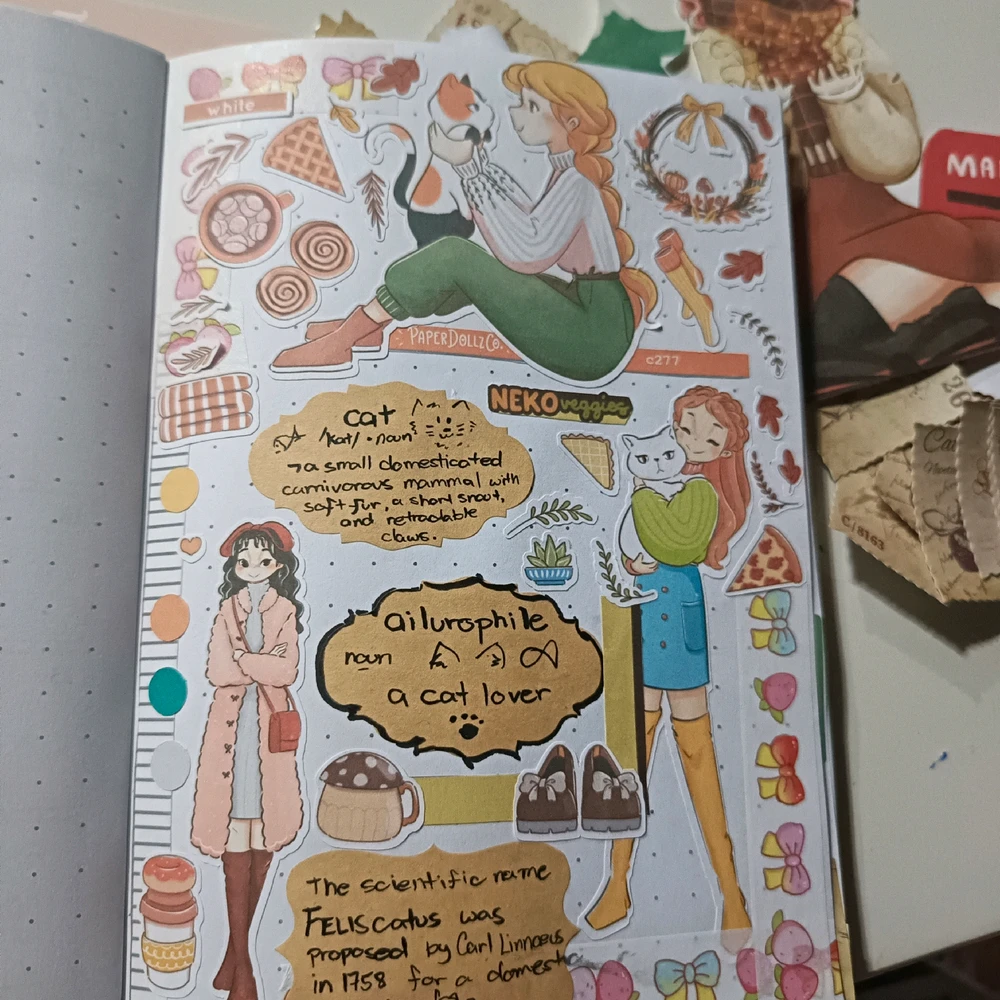 white
PAPERDOLLZCo.
c277
MA
NEKO veggies
cat
/kat/ • noun
→ a small domesticated
carnivorous mammal with
soft fur, a short snout,
and retractable
claws.
ailurophile
noun
a cat lover
The scientific name
FELIS catus was
proposed by Carl Linnaeus
in 1758 for a domestic
C/8163